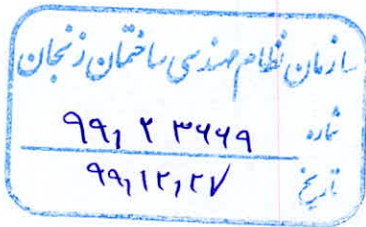 سازمان نظام مهندسی ساختمان زنجان
شماره ۹۹,۲۳۶۶۹
تاریخ ۹۹,۱۲,۲۷